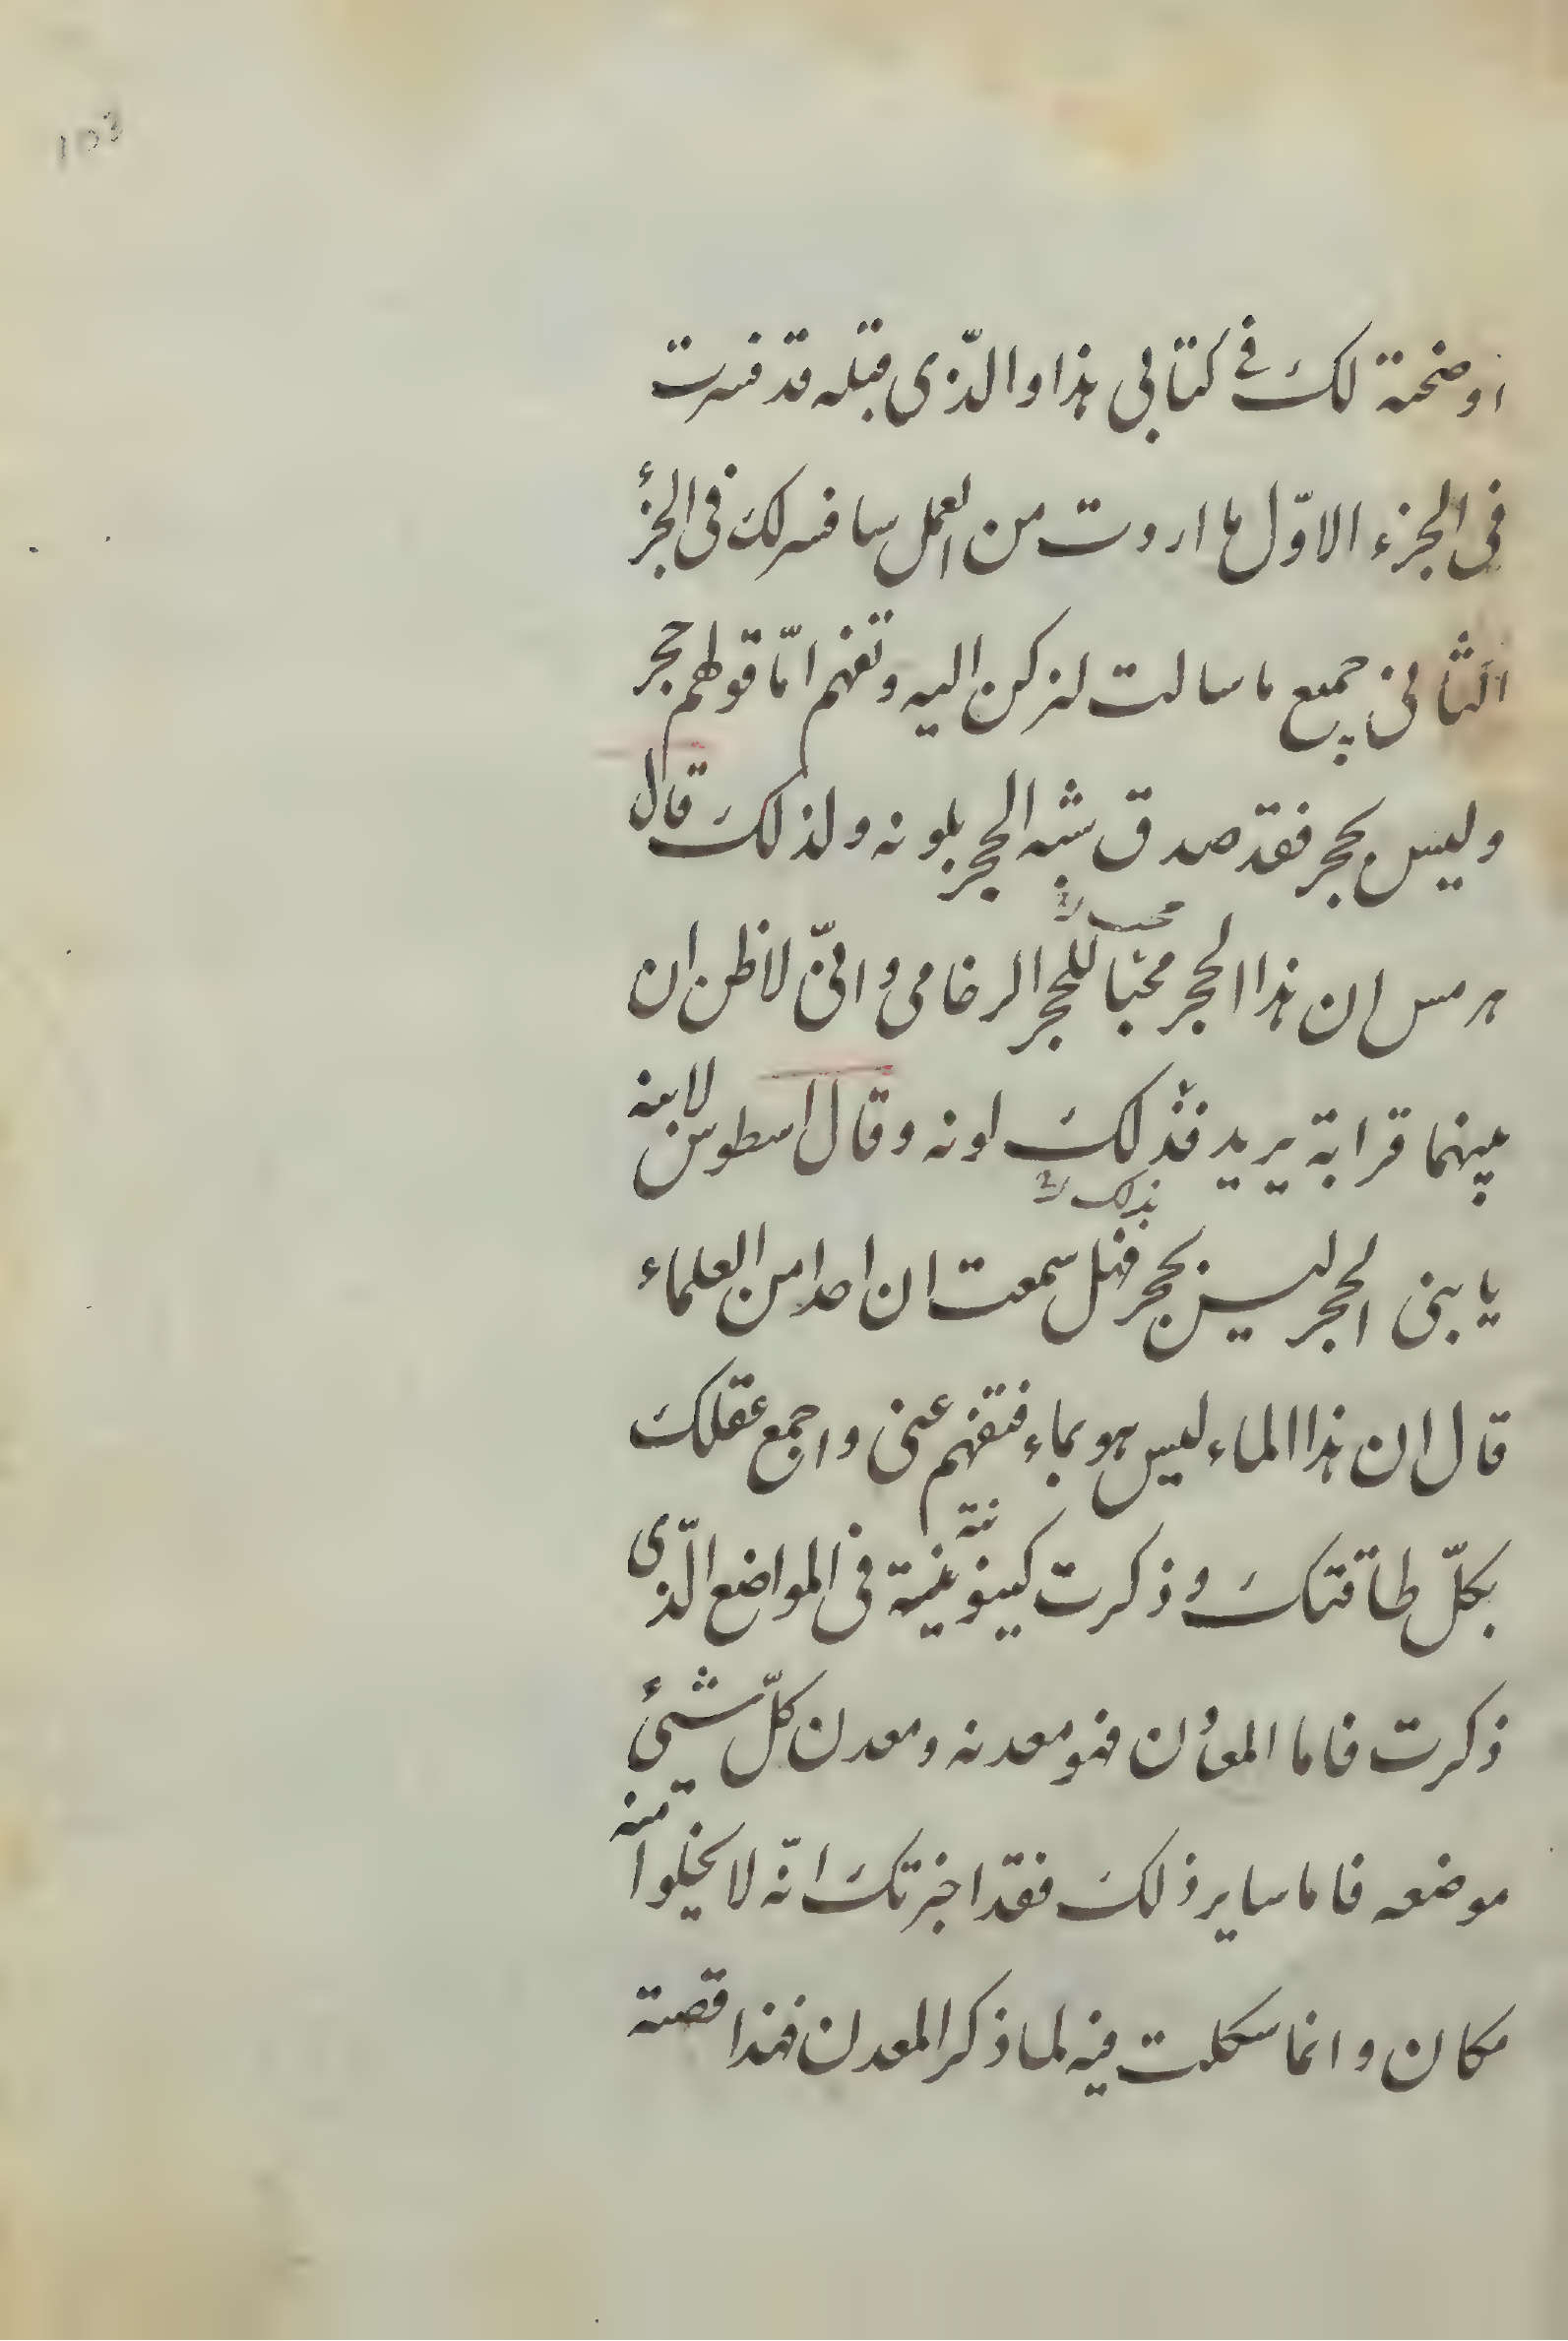 103
اوضحته لك في كتابي هذا والذّي قبله قد فسرت
في الجزء الاوّل ما اردت من العمل سافسر لك في الجزء
الثّاني جميع ما سالت لتركن اليه وتفهم امّا قولهم حجر
وليس بحجر فقد صدق شبه الحجر بلونه ولذلك قال
محب
هرمس ان هذا الحجر محبا للحجر الرخامي وانّي لاظن ان
بينهما قرابة يريد فذلك لونه وقال اسطوس لابنه
بذلك
يا بني الحجر ليس بحجر فهل سمعت ان احدا من العلماء
قال ان هذا الماء ليس هو بماء فتفهم عني واجمع عقلك
بكلّ طاقتك وذكرت كينونيته في المواضع الّذي
ذكرت فاما المعدن فهو معدنه ومعدن كلّ شيئ
موضعه فاما ساير ذلك فقد اخبرتك انّه لا يخلوا منه
مكان وانما سكلت فيه لما ذكر المعدن فهذا قصته